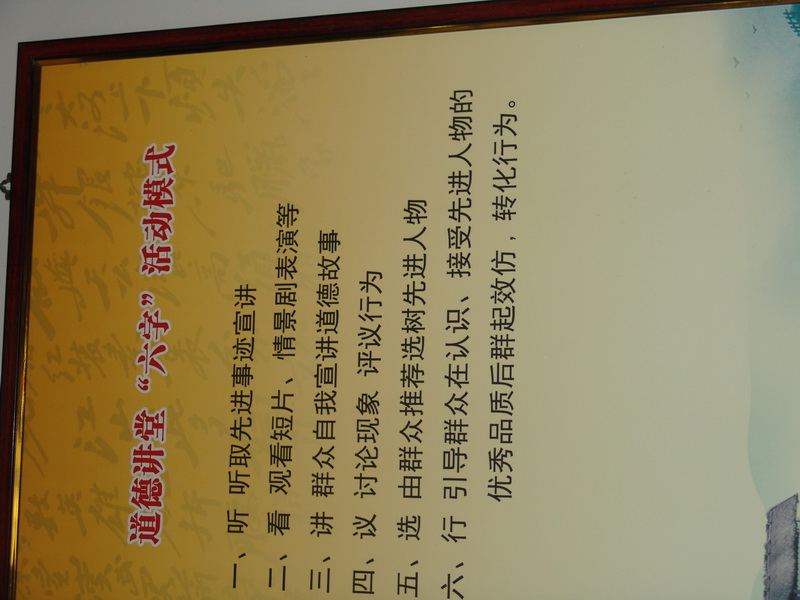 道德讲堂“六字”活动模式
一、听 听取先进事迹宣讲
二、看 观看短片、情景剧表演等
三、讲 群众自我宣讲道德故事
四、议 讨论现象 评议行为
五、选 由群众推荐选树先进人物
六、行 引导群众在认识、接受先进人物的
优秀品质后群起效仿，转化行为。